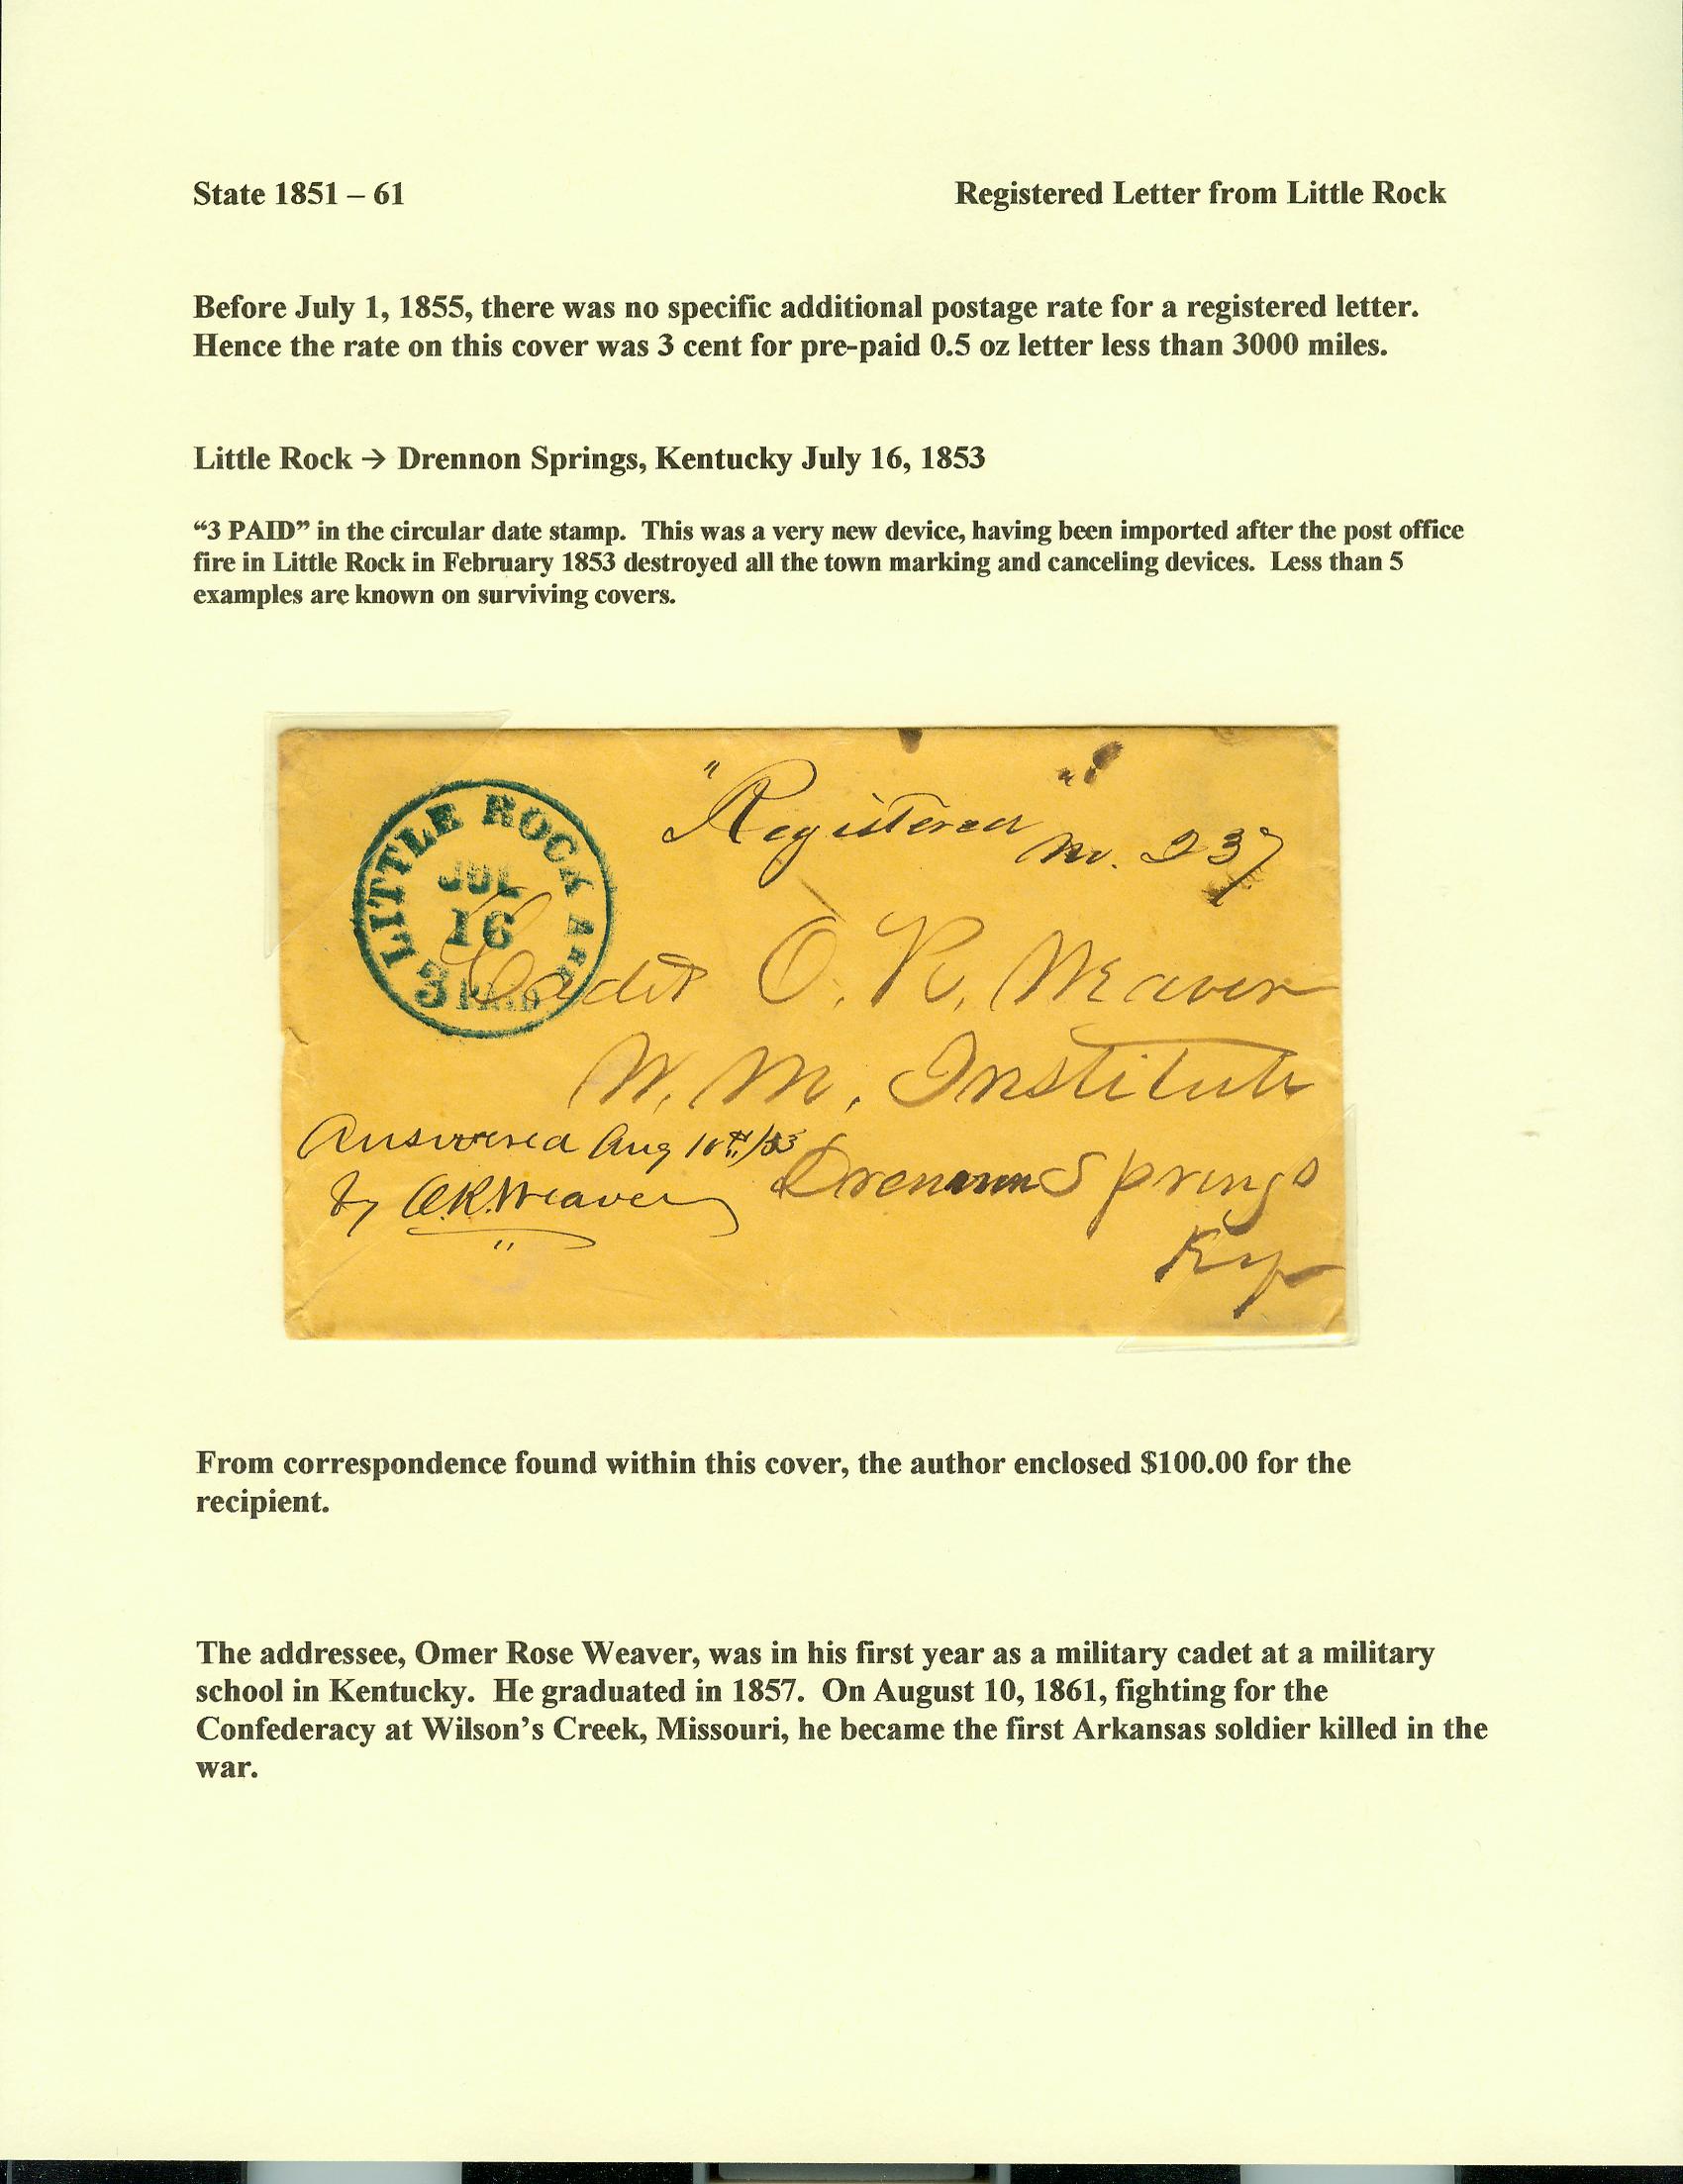 State 1851 – 61
Registered Letter from Little Rock
Before July 1, 1855, there was no specific additional postage rate for a registered letter.
Hence the rate on this cover was 3 cent for pre-paid 0.5 oz letter less than 3000 miles.
Little Rock → Drennon Springs, Kentucky July 16, 1853
“3 PAID” in the circular date stamp.  This was a very new device, having been imported after the post office
fire in Little Rock in February 1853 destroyed all the town marking and canceling devices.  Less than 5
examples are known on surviving covers.
"Registered"
No. 237
LITTLE ROCK ARK
JUL
16
3 PAID
Cadet O. R. Weaver
W. M. Institute
Answered Aug 10th/53
by O.R. Weaver
Drennon Springs
Ky
From correspondence found within this cover, the author enclosed $100.00 for the
recipient.
The addressee, Omer Rose Weaver, was in his first year as a military cadet at a military
school in Kentucky.  He graduated in 1857.  On August 10, 1861, fighting for the
Confederacy at Wilson’s Creek, Missouri, he became the first Arkansas soldier killed in the
war.